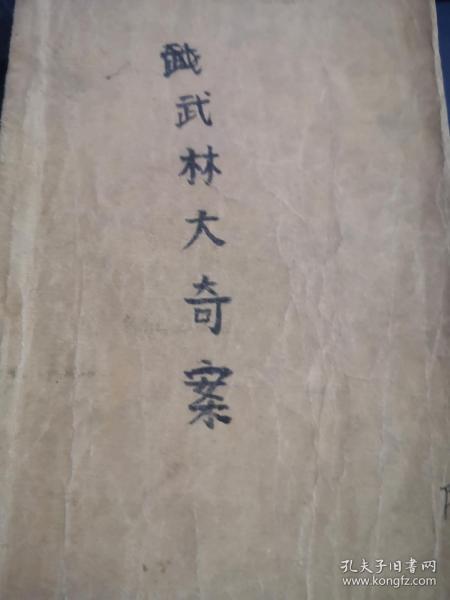 武林大奇案
孔夫子旧书网
www.kongfz.com